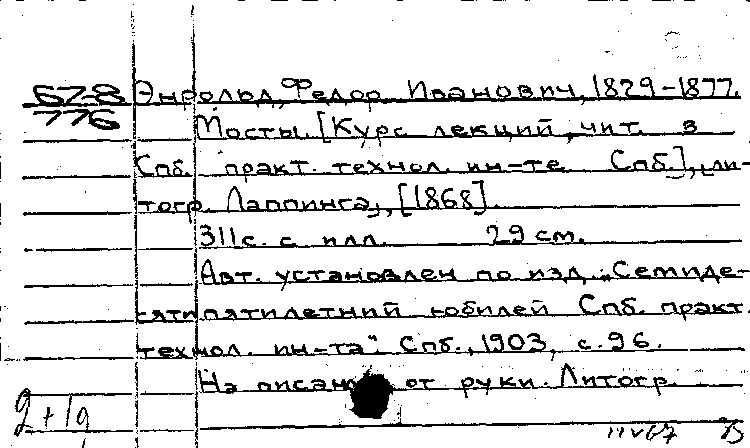 67-8 Энрольд, Федор Иванович, 1829-1877.
776 Мосты. [Курс лекций, чит. в
Спб. практ. технол. ин-те Спб.], ли-
тогр. Лаппинга, [1868].
311 с. с илл. 29 см.
Авт. установлен по изд. "Семиде-
сятипятилетний юбилей Спб. практ.
технол. ин-та". Спб., 1903, с. 96.
Написано от руки. Литогр.
2+1д
11 V 67